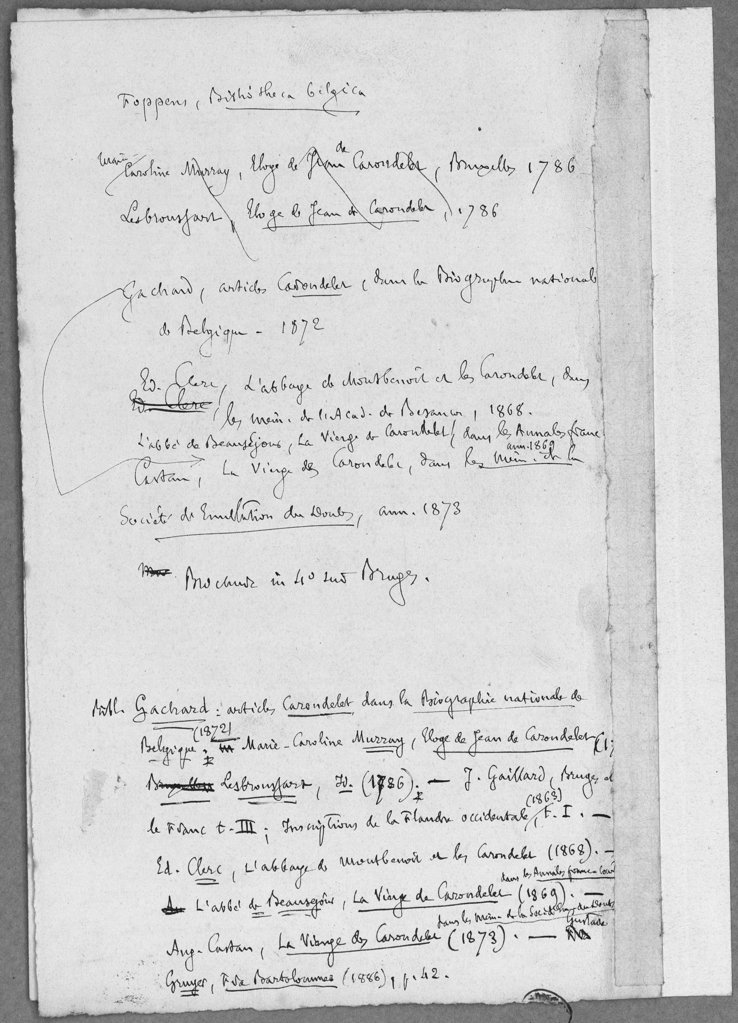 Foppens, Bibliotheca belgica
Marie
Caroline Murray, Eloge de Jean de Carondelet, Bruxelles 1786
Lesbroussart, Eloge de Jean de Carondelet, 1786
Gachard, articles Carondelet, dans la Biographie nationale
de Belgique - 1872
Ed. Clerc, L'abbaye de Montbenoit et les Carondelet, dans
Ed. Clerc, les mém. de l'Acad. de Besançon, 1868.
L'abbé de Beauséjour, La Vierge de Carondelet, dans les Annales franc
ann. 1869
Castan, La Vierge des Carondelet, dans les mém. de la
Société de Emulation du Doubs, ann. 1873
Brochure in 4° sur Bruges.
Bibl. Gachard : articles Carondelet dans la Biographie nationale de
Belgique (1872). Marie-Caroline Murray, Eloge de Jean de Carondelet (1;
Bruxelles Lesbroussart, Id. (1786). — J. Gailliard, Bruges et
le Franc t. III ; Inscriptions de la Flandre occidentale (1863), t. I. —
Ed. Clerc, L'abbaye de Montbenoit et les Carondelet (1868). —
dans les Annales franc-comt
L'abbé de Beauséjour, La Vierge de Carondelet (1869). —
dans les mém. de la Société Emul. du Doubs
Aug. Castan, La Vierge des Carondelet (1873). — Gustave
Gruyer, Fra Bartolommeo (1886), p. 42.